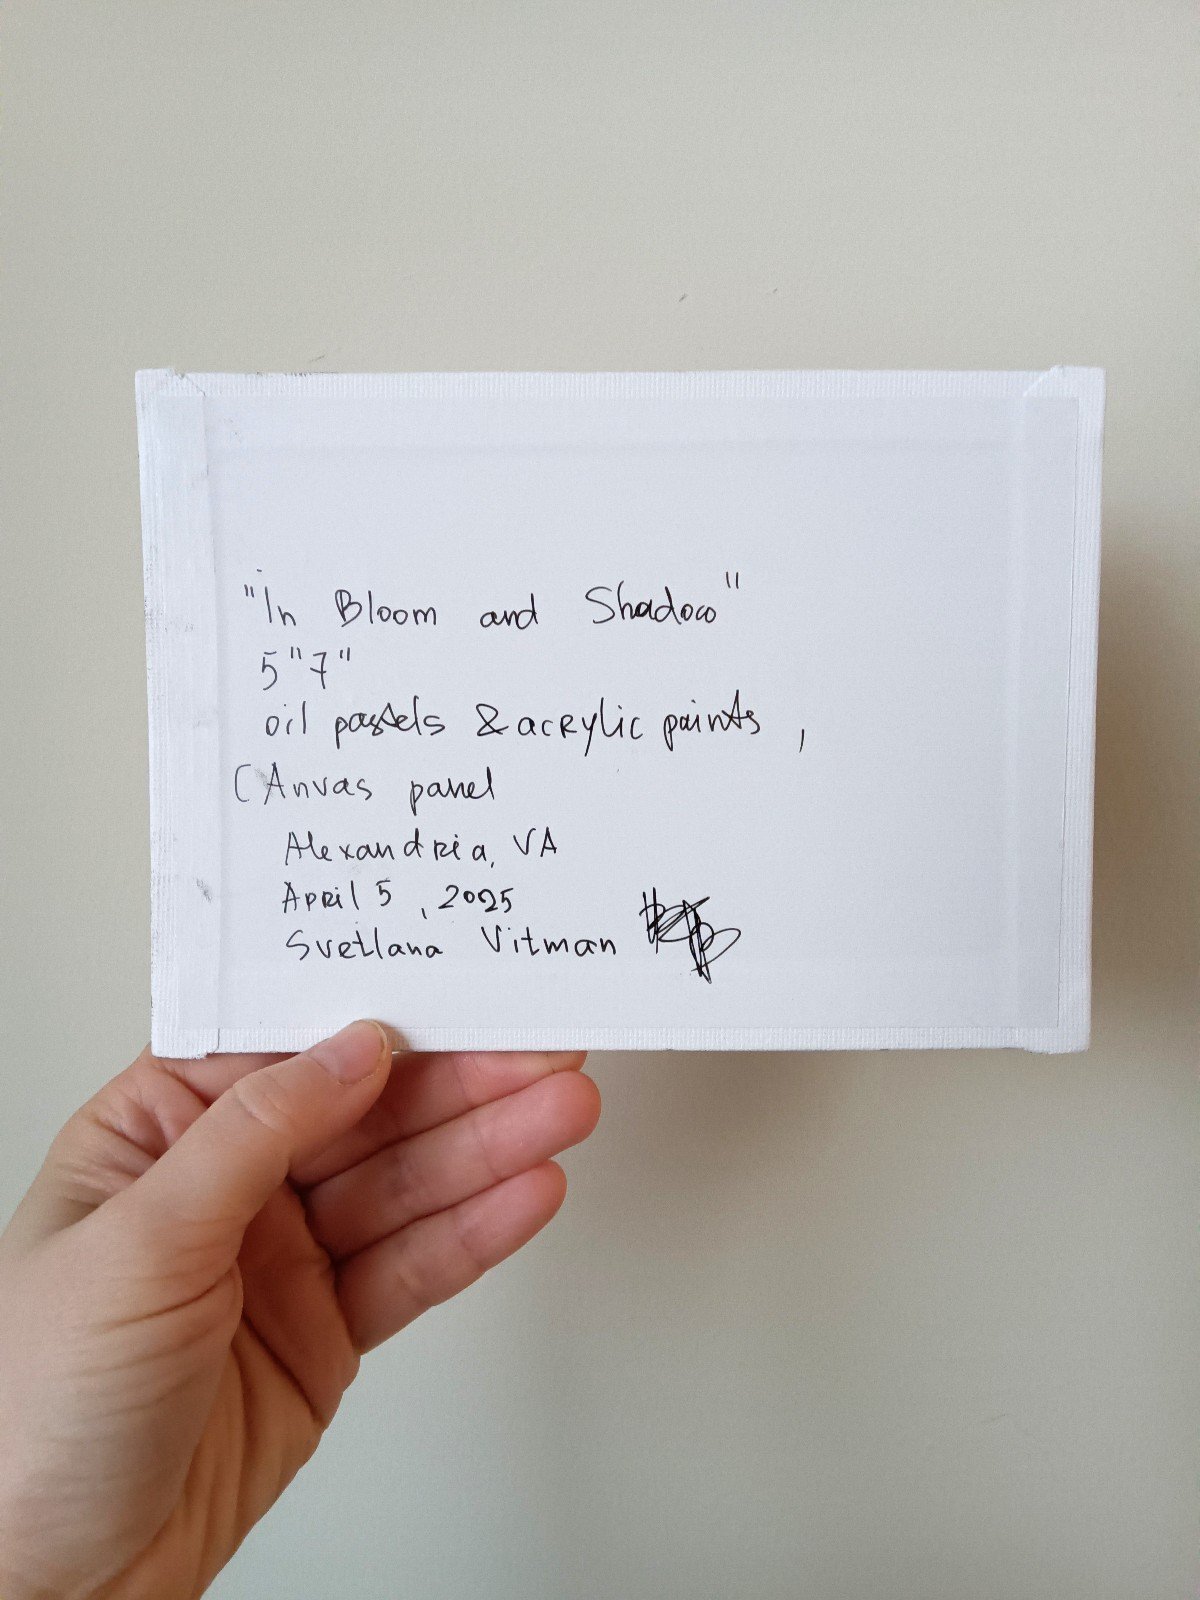 "In Bloom and Shadow"
5"7"
oil pastels & acrylic paints,
Canvas panel
Alexandria, VA
April 5, 2025
Svetlana Vitman